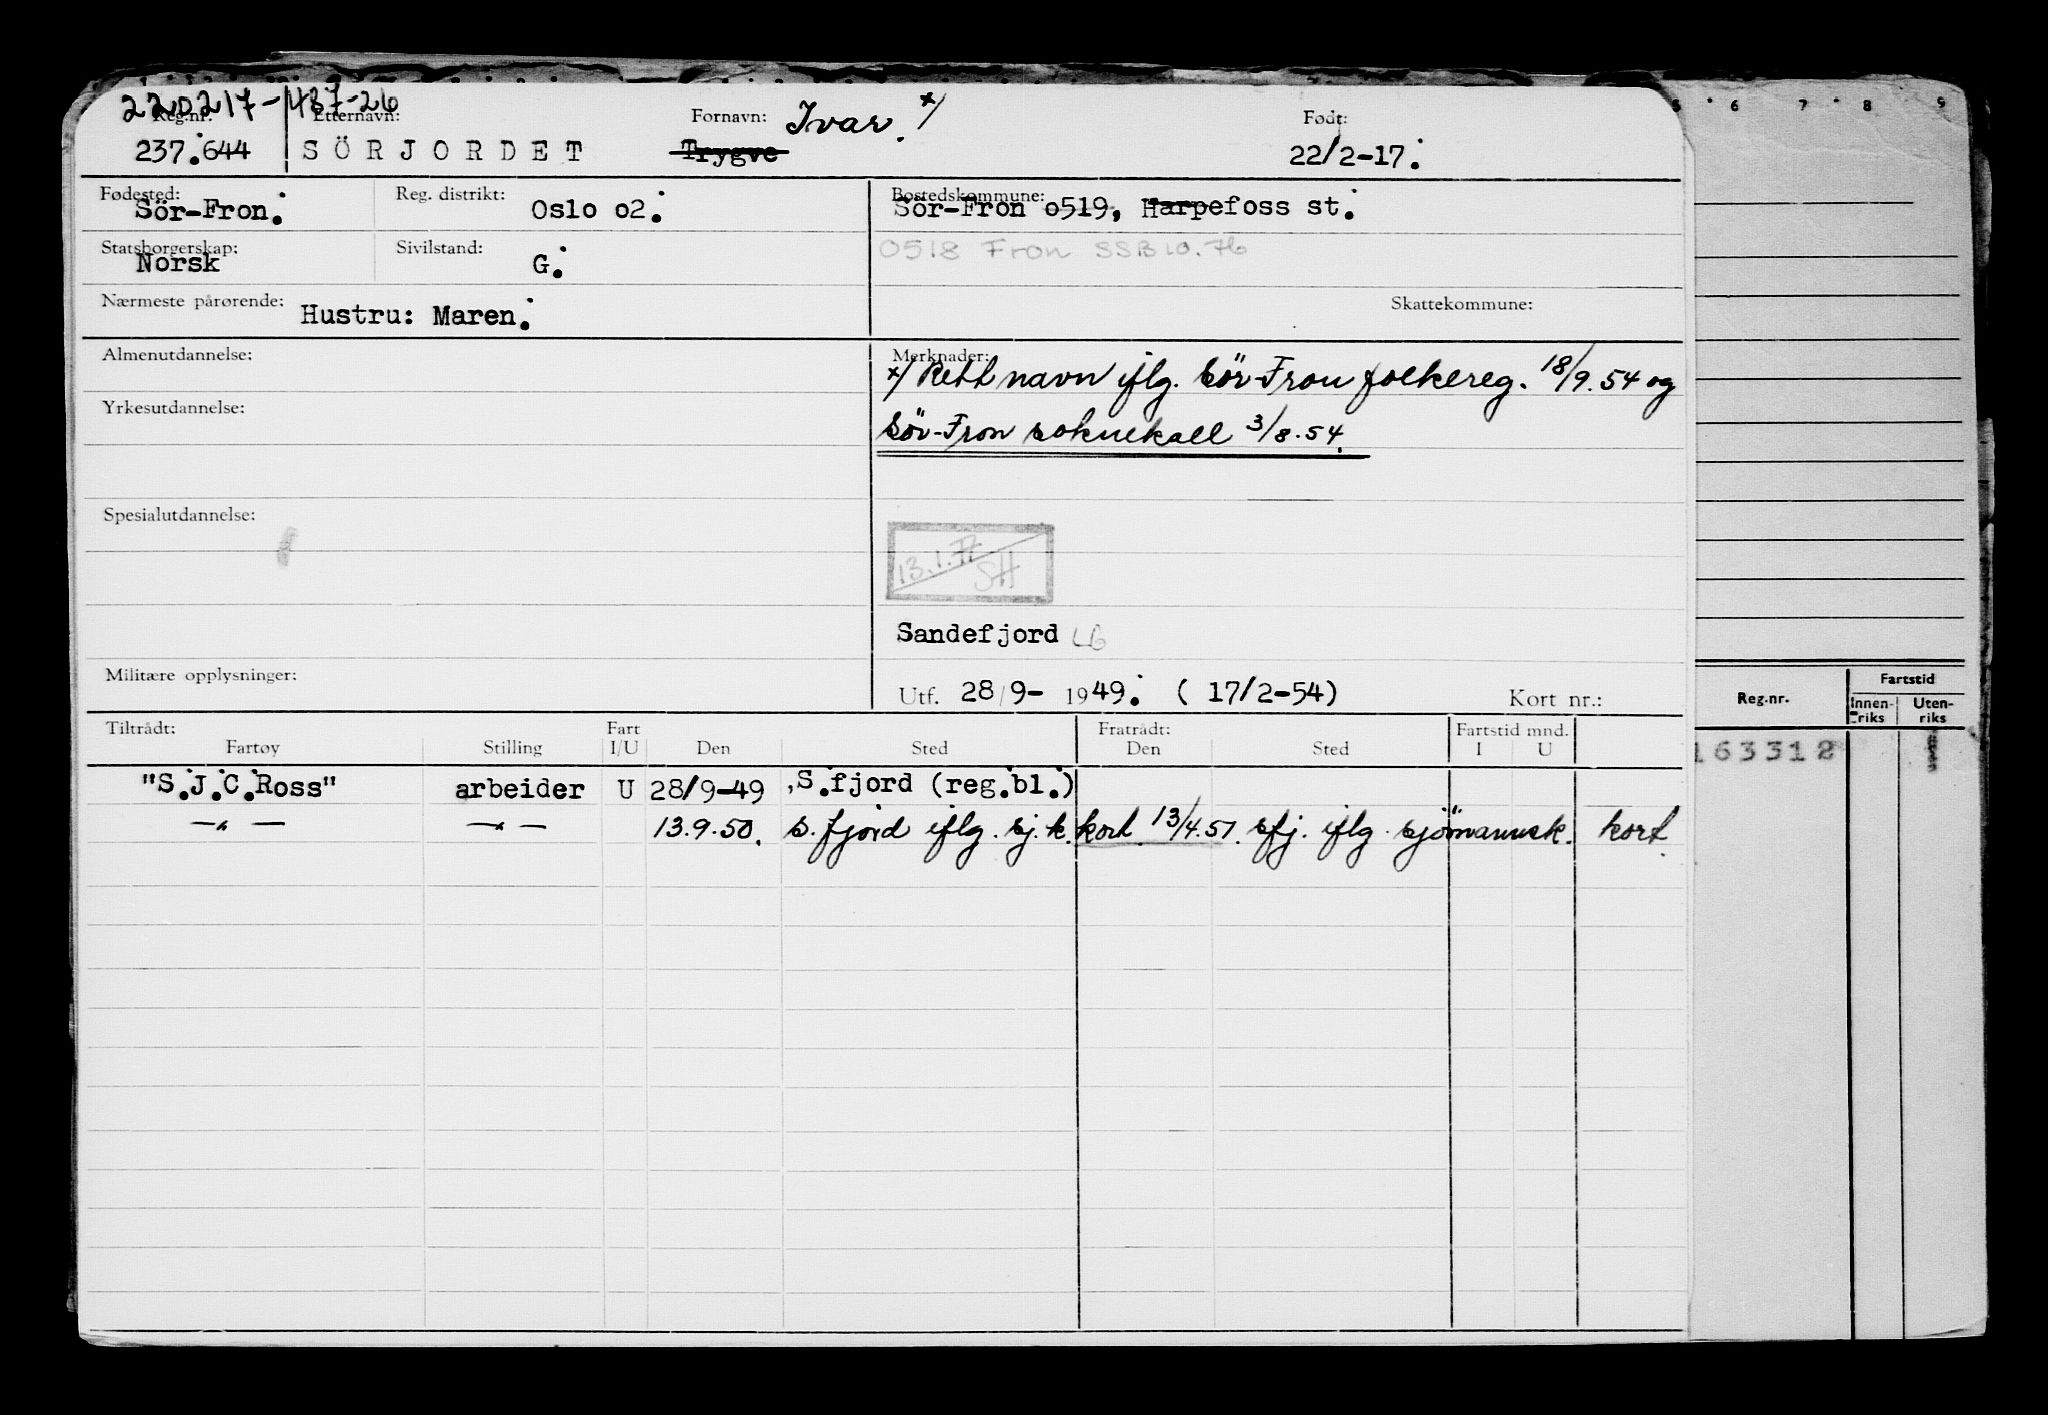 220217-487-26
Reg.nr. Etternavn: Fornavn: Ivar. x/ Født:
237.644 SÖRJORDET Trygve 22/2-17.
Fødested: Reg. distrikt: Bostedskommune:
Sör-Fron. Oslo 02. Sör-Fron 0519, Harpefoss st.
Statsborgerskap: Sivilstand: 0518 Fron SSB 10.76
Norsk G.
Nærmeste pårørende: Skattekommune:
Hustru: Maren.
Almenutdannelse: Merknader:
x/ Rett navn iflg. Sör-Fron folkereg. 18/9.54 og
Yrkesutdannelse:
Sör-Fron soknekall 3/8.54.
Spesialutdannelse:
13.1.77
SH
Sandefjord LG
Militære opplysninger:
Utf. 28/9- 1949. ( 17/2-54) Kort nr.:
Tiltrådt: Fart Fratrådt: Fartstid mnd.
Fartøy Stilling I/U Den Sted Den Sted I U
"S.J.C.Ross" arbeider U 28/9-49 S.fjord (reg.bl.)
—„— —„— 13.9.50. S.fjord iflg. sj.k.kort 13/4.51. Sfj. iflg. sjömannsk. kort.
5 6 7 8 9
Fartstid
Reg.nr. Innen- Uten-
riks riks
163312